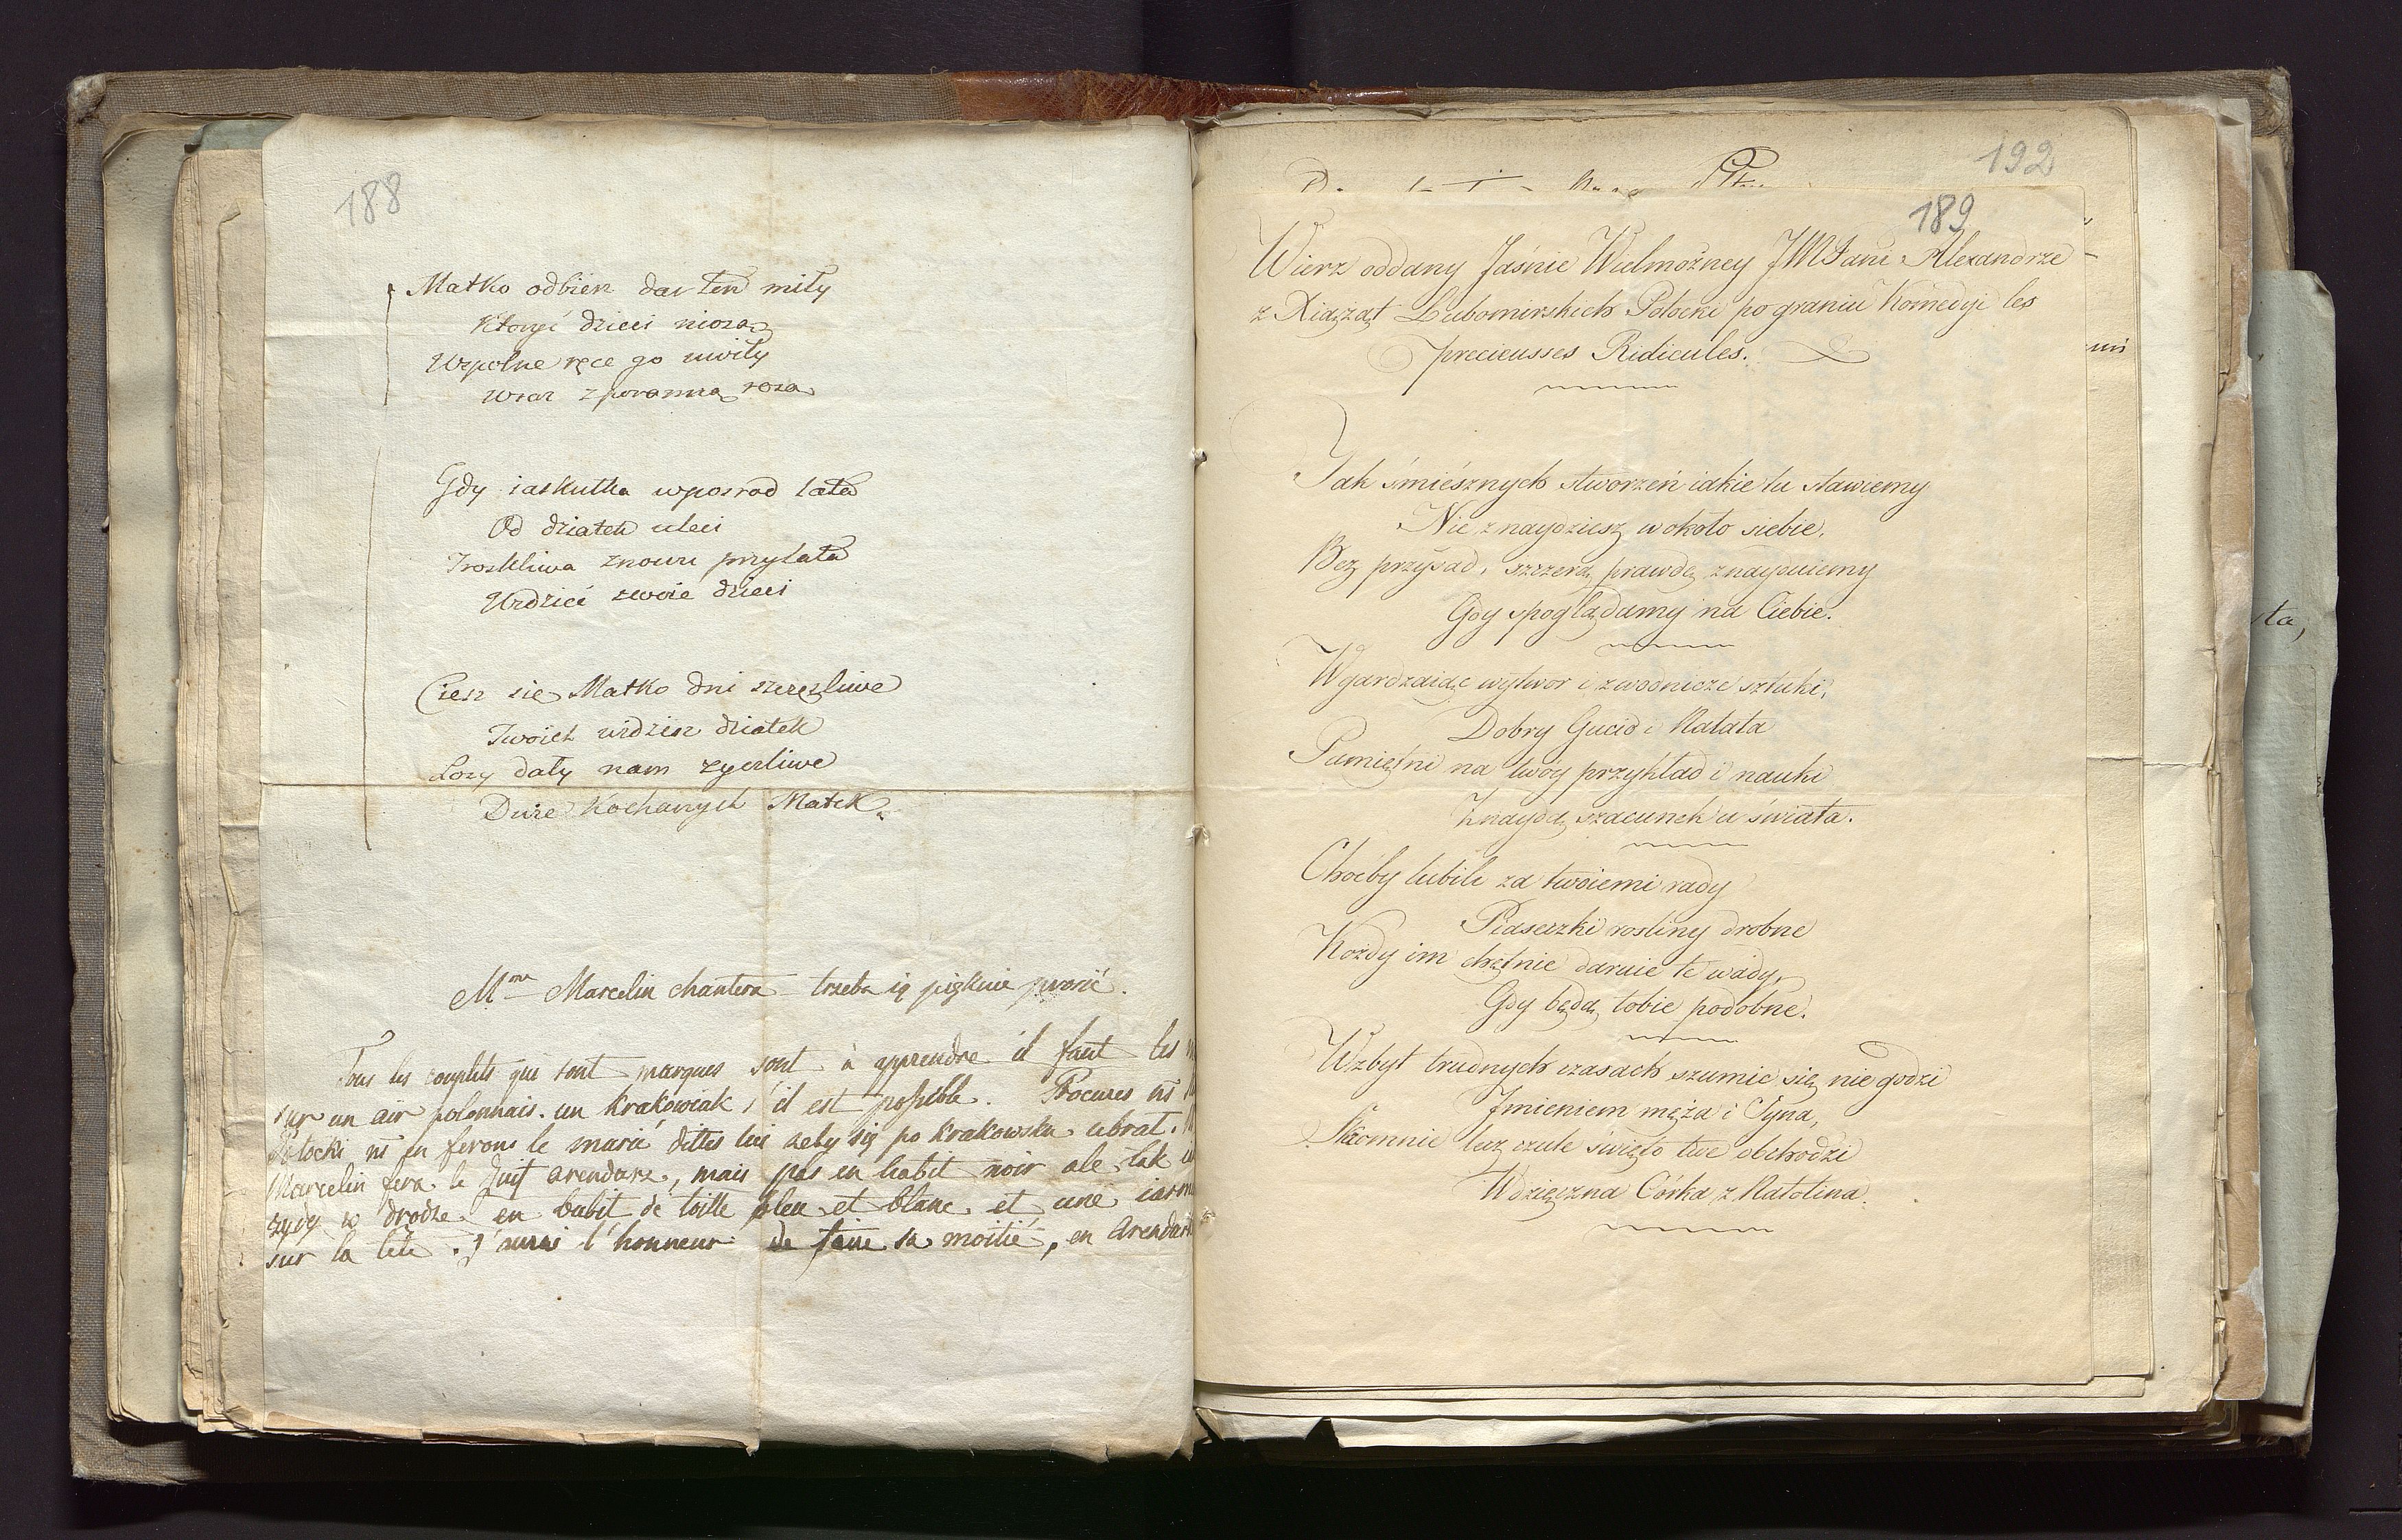 188
Matko odbierz dar ten miły
Ktoryć dzieci niosą
Wspolne ręce go uwiły
Wraz z poranną rosą
Gdy iaskułka wposrod lata
Od dziatek uleci
Troskliwa znowu przylata
Widzieć swoie dzieci
Ciesz się Matko dni szczęzliwe
Twoich widzisz dziatek
Losy dały nam zyczliwe
Dwie Kochanych Matek
Mme Marcelin chantera trzeba ią pięknie prosić.
Tous les couplets qui sont marques sont à apprendre il faut les
sur un air polonnais. un Krakowiak s'il est possible. Procures ns
Potocki ns en ferons le marié dittes lui zeby się po krakowsku ubrał.
Marcelin fera le Juif arendarz, mais pas en habit noir ale tak
zydzy w drodze en babit de toille bleu et blanc et une
sur la tete. j'aurai l'honneur de faire sa moitié, en Arendar
192
189
Wierz oddany Jaśnie Wielmożney JMPani Alexandrze
z Xiążąt Lubomirskich Potocki po graniu Komedyi les
precieusses Ridicules.
Jak śmiésznych stworzeń iakie tu stawiemy
Nie znaydziesz wokoło siebie.
Bez przysad, szczerą prawdę znayduiemy
Gdy spoglądamy na Ciebie.
Wgardzaiąc wytwor i zwodnicze sztuki,
Dobry Gucio i Natata
Pamiętni na twóy przykład i nauki
Znaydą szacunek u świata.
Choćby lubili za twoiemi rady
Ptaseczki rosliny drobne
Kożdy im chętnie daruie te wady,
Gdy będą tobie podobne.
Wzbyt trudnych czasach szumic się nie godzi
Jmieniem męża i Syna,
Skromnie lecz czule święto twe obchodzi
Wdzięczna Córka z Natolina.